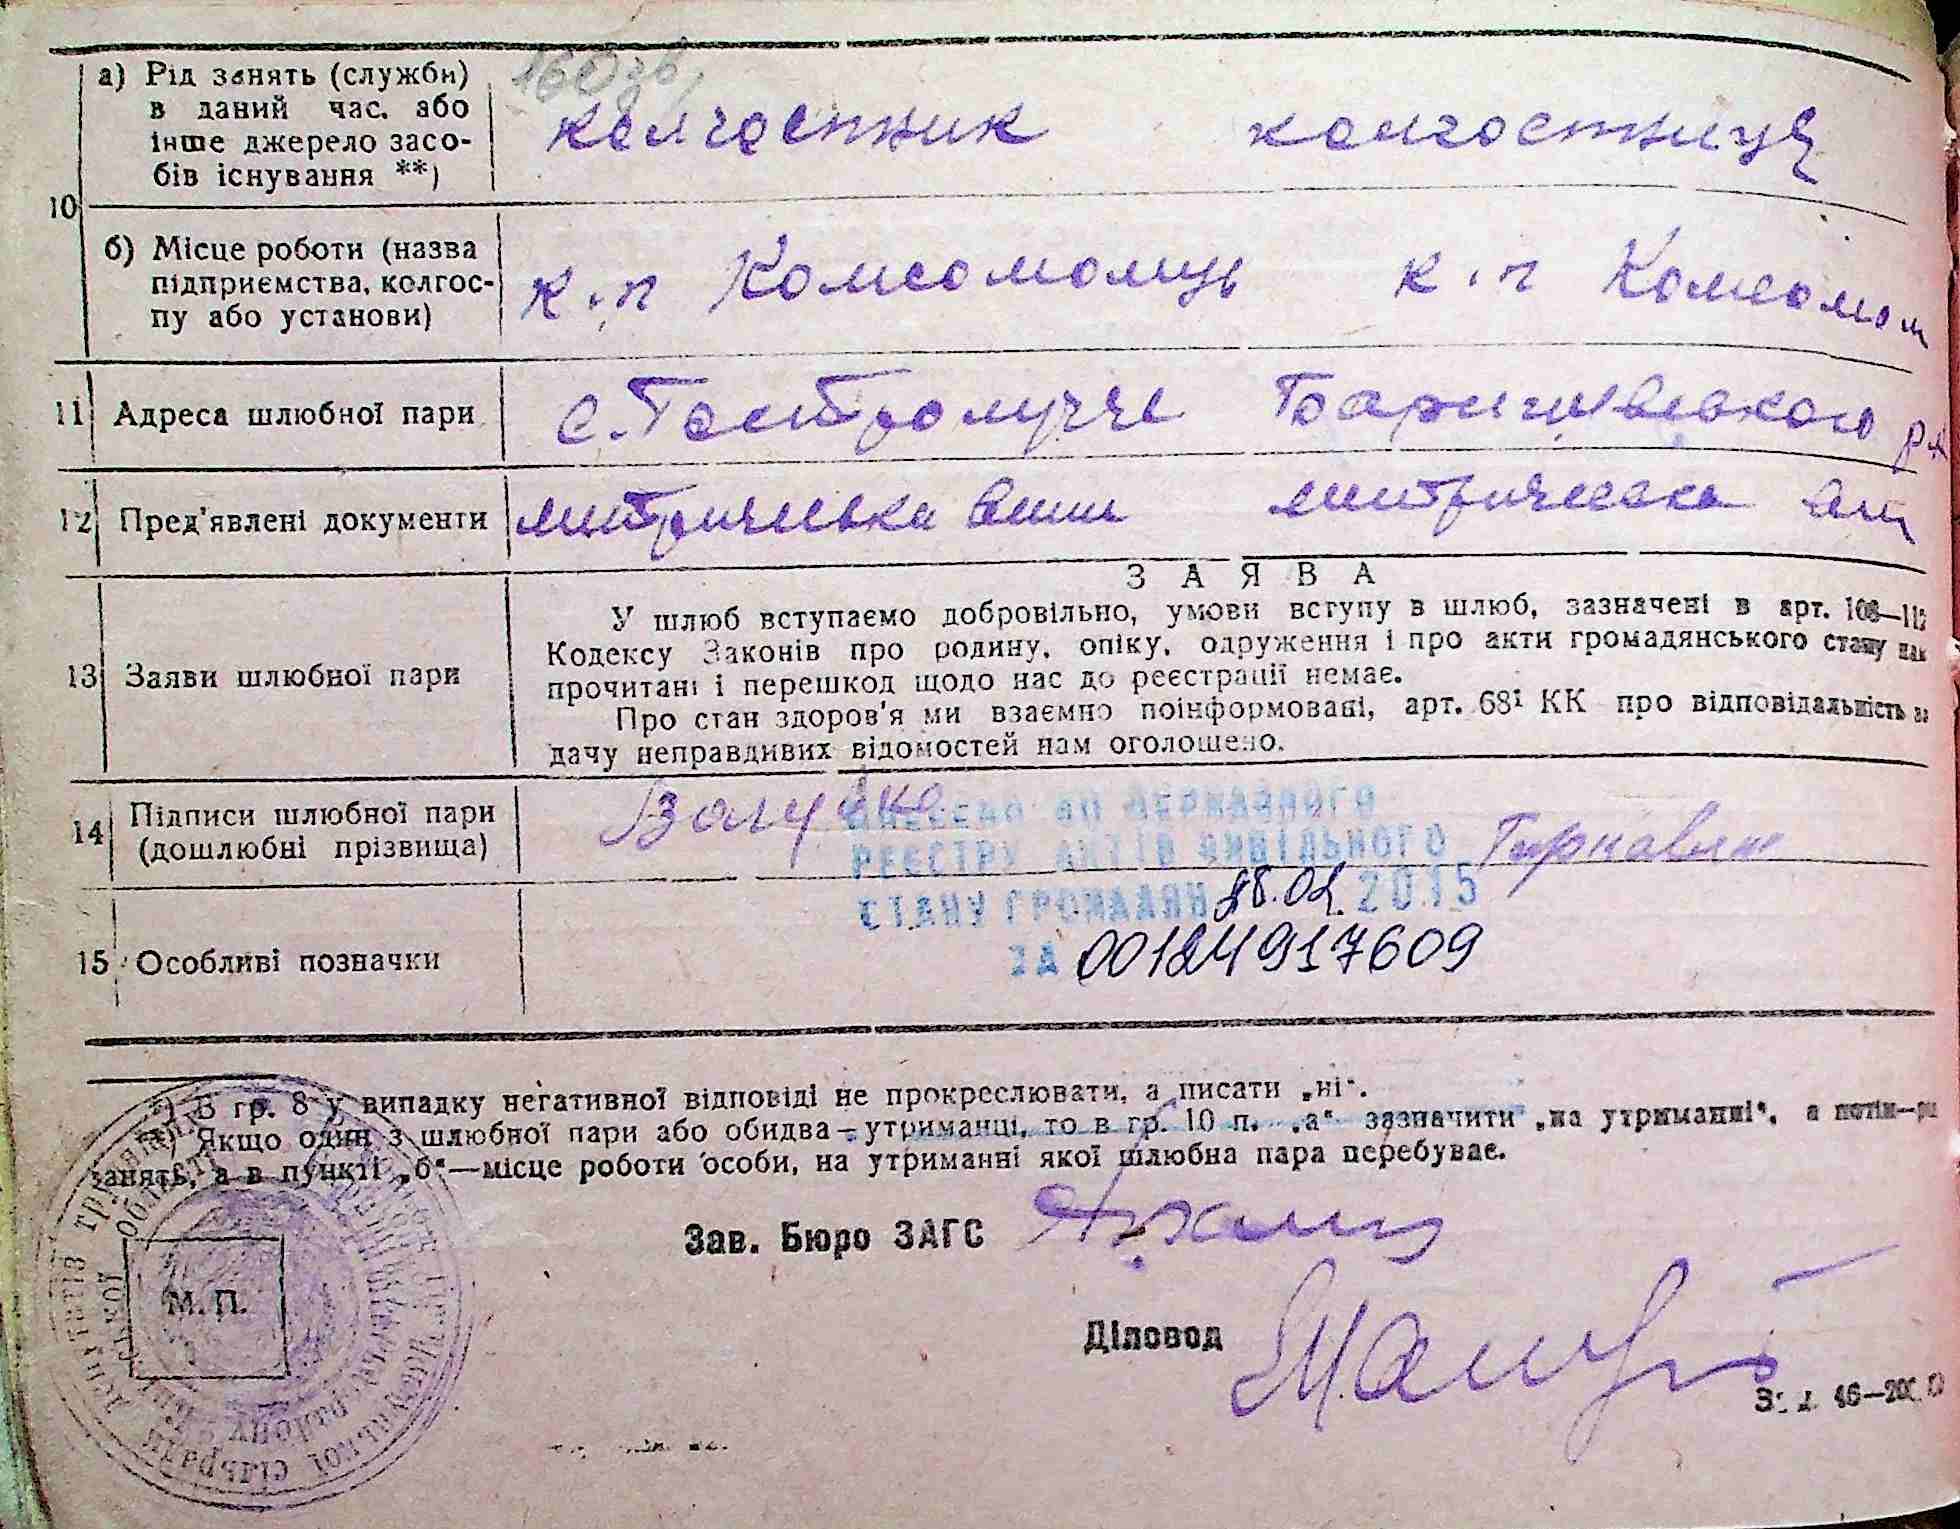 160 зв.
10
а) Рід занять (служби)
в даний час, або
інше джерело засо-
бів існування **)
колгоспник колгоспниця
б) Місце роботи (назва
підприємства, колгос-
пу або установи)
к.п Комсомолиць к.п Комсомол
11 Адреса шлюбної пари
с. Гостролуччє Баришівського рн
12 Пред'явлені документи
митрическа випи митрическа вип
13 Заяви шлюбної пари
ЗАЯВА
У шлюб вступаємо добровільно, умови вступу в шлюб, зазначені в арт. 108—112
Кодексу Законів про родину, опіку, одруження і про акти громадянського стану нам
прочитані і перешкод щодо нас до реєстрації немає.
Про стан здоров'я ми взаємно поінформовані, арт. 68¹ КК про відповідальність за
дачу неправдивих відомостей нам оголошено.
14 Підписи шлюбної пари
(дошлюбні прізвища)
ВНЕСЕНО ДО ДЕРЖАВНОГО
РЕЄСТРУ АКТІВ ЦИВІЛЬНОГО
СТАНУ ГРОМАДЯН 28.02.2015
ЗА 00124917609
15 Особливі позначки
*) В гр. 8 у випадку негативної відповіді не прокреслювати, а писати „ні“.
Якщо один з шлюбної пари або обидва—утриманці, то в гр. 10 п. „а“ зазначити „на утриманні“, а потім—рід
занять, а в пункті „б“—місце роботи особи, на утриманні якої шлюбна пара перебуває.
Зав. Бюро ЗАГС
М. П.
Діловод